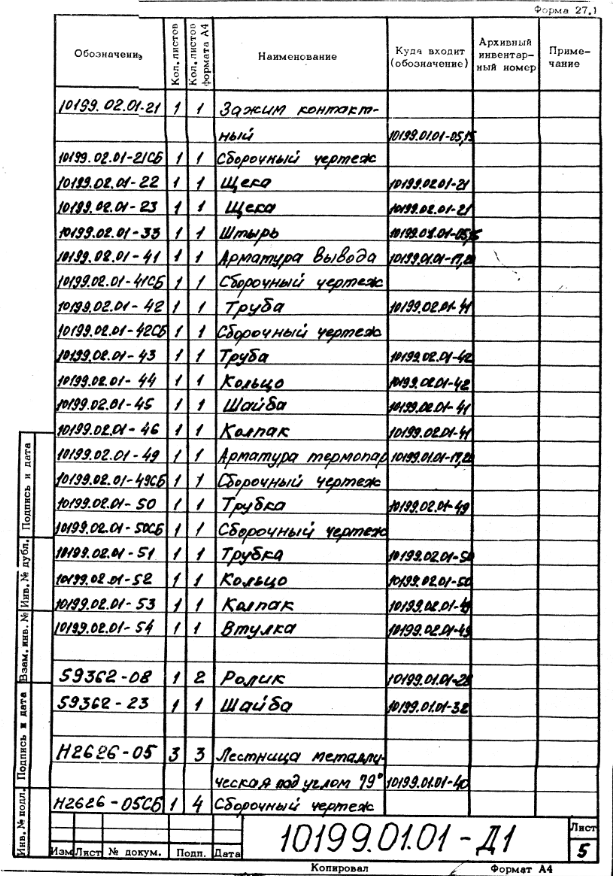 Форма 27.1
Обозначение Кол. листов Кол. листов формата А4 Наименование Куда входит (обозначение) Архивный инвентарный номер Примечание
10199.02.01-21 1 1 Зажим контакт-
ный 10199.01.01-05,15
10199.02.01-21СБ 1 1 Сборочный чертеж
10199.02.01-22 1 1 Щека 10199.02.01-21
10199.02.01-23 1 1 Щека 10199.02.01-21
10199.02.01-33 1 1 Штырь 10199.01.01-05,15
10199.02.01-41 1 1 Арматура вывода 10199.01.01-17,20
10199.02.01-41СБ 1 1 Сборочный чертеж
10199.02.01-42 1 1 Труба 10199.02.01-41
10199.02.01-42СБ 1 1 Сборочный чертеж
10199.02.01-43 1 1 Труба 10199.02.01-42
10199.02.01-44 1 1 Кольцо 10199.02.01-42
10199.02.01-45 1 1 Шайба 10199.02.01-41
10199.02.01-46 1 1 Колпак 10199.02.01-41
10199.02.01-49 1 1 Арматура термопар 10199.01.01-17,20
10199.02.01-49СБ 1 1 Сборочный чертеж
10199.02.01-50 1 1 Трубка 10199.02.01-49
10199.02.01-50СБ 1 1 Сборочный чертеж
10199.02.01-51 1 1 Трубка 10199.02.01-50
10199.02.01-52 1 1 Кольцо 10199.02.01-50
10199.02.01-53 1 1 Колпак 10199.02.01-49
10199.02.01-54 1 1 Втулка 10199.02.01-49
59362-08 1 2 Ролик 10199.01.01-28
59362-23 1 1 Шайба 10199.01.01-32
Н2626-05 3 3 Лестница металли-
ческая под углом 79° 10199.01.01-40
Н2626-05СБ 1 4 Сборочный чертеж
Инв. № подл. Подпись и дата Взам. инв. № Инв. № дубл. Подпись и дата
10199.01.01-Д1
Лист
5
Изм Лист № докум. Подп. Дата
Копировал Формат А4